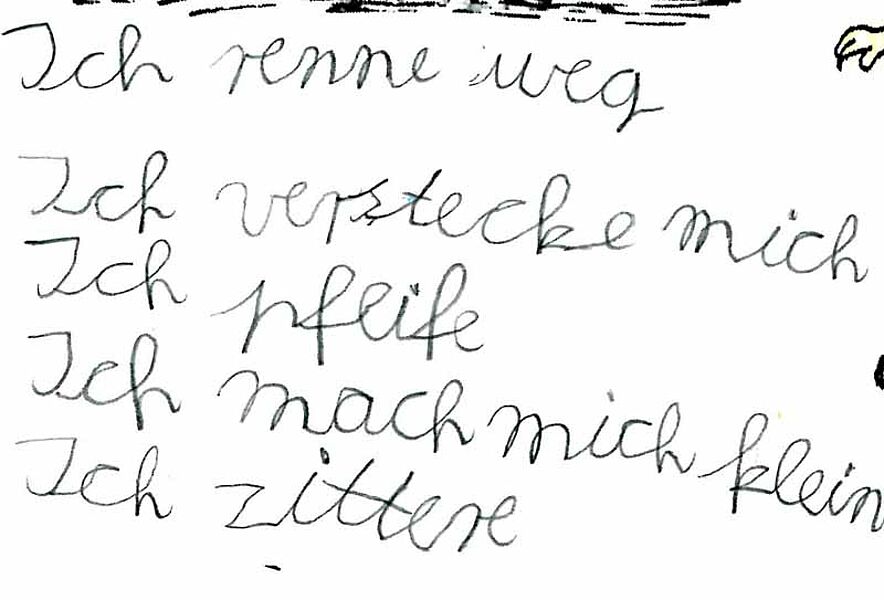 Ich renne weg
Ich verstecke mich
Ich pfeife
Ich mach mich klein
Ich zittere